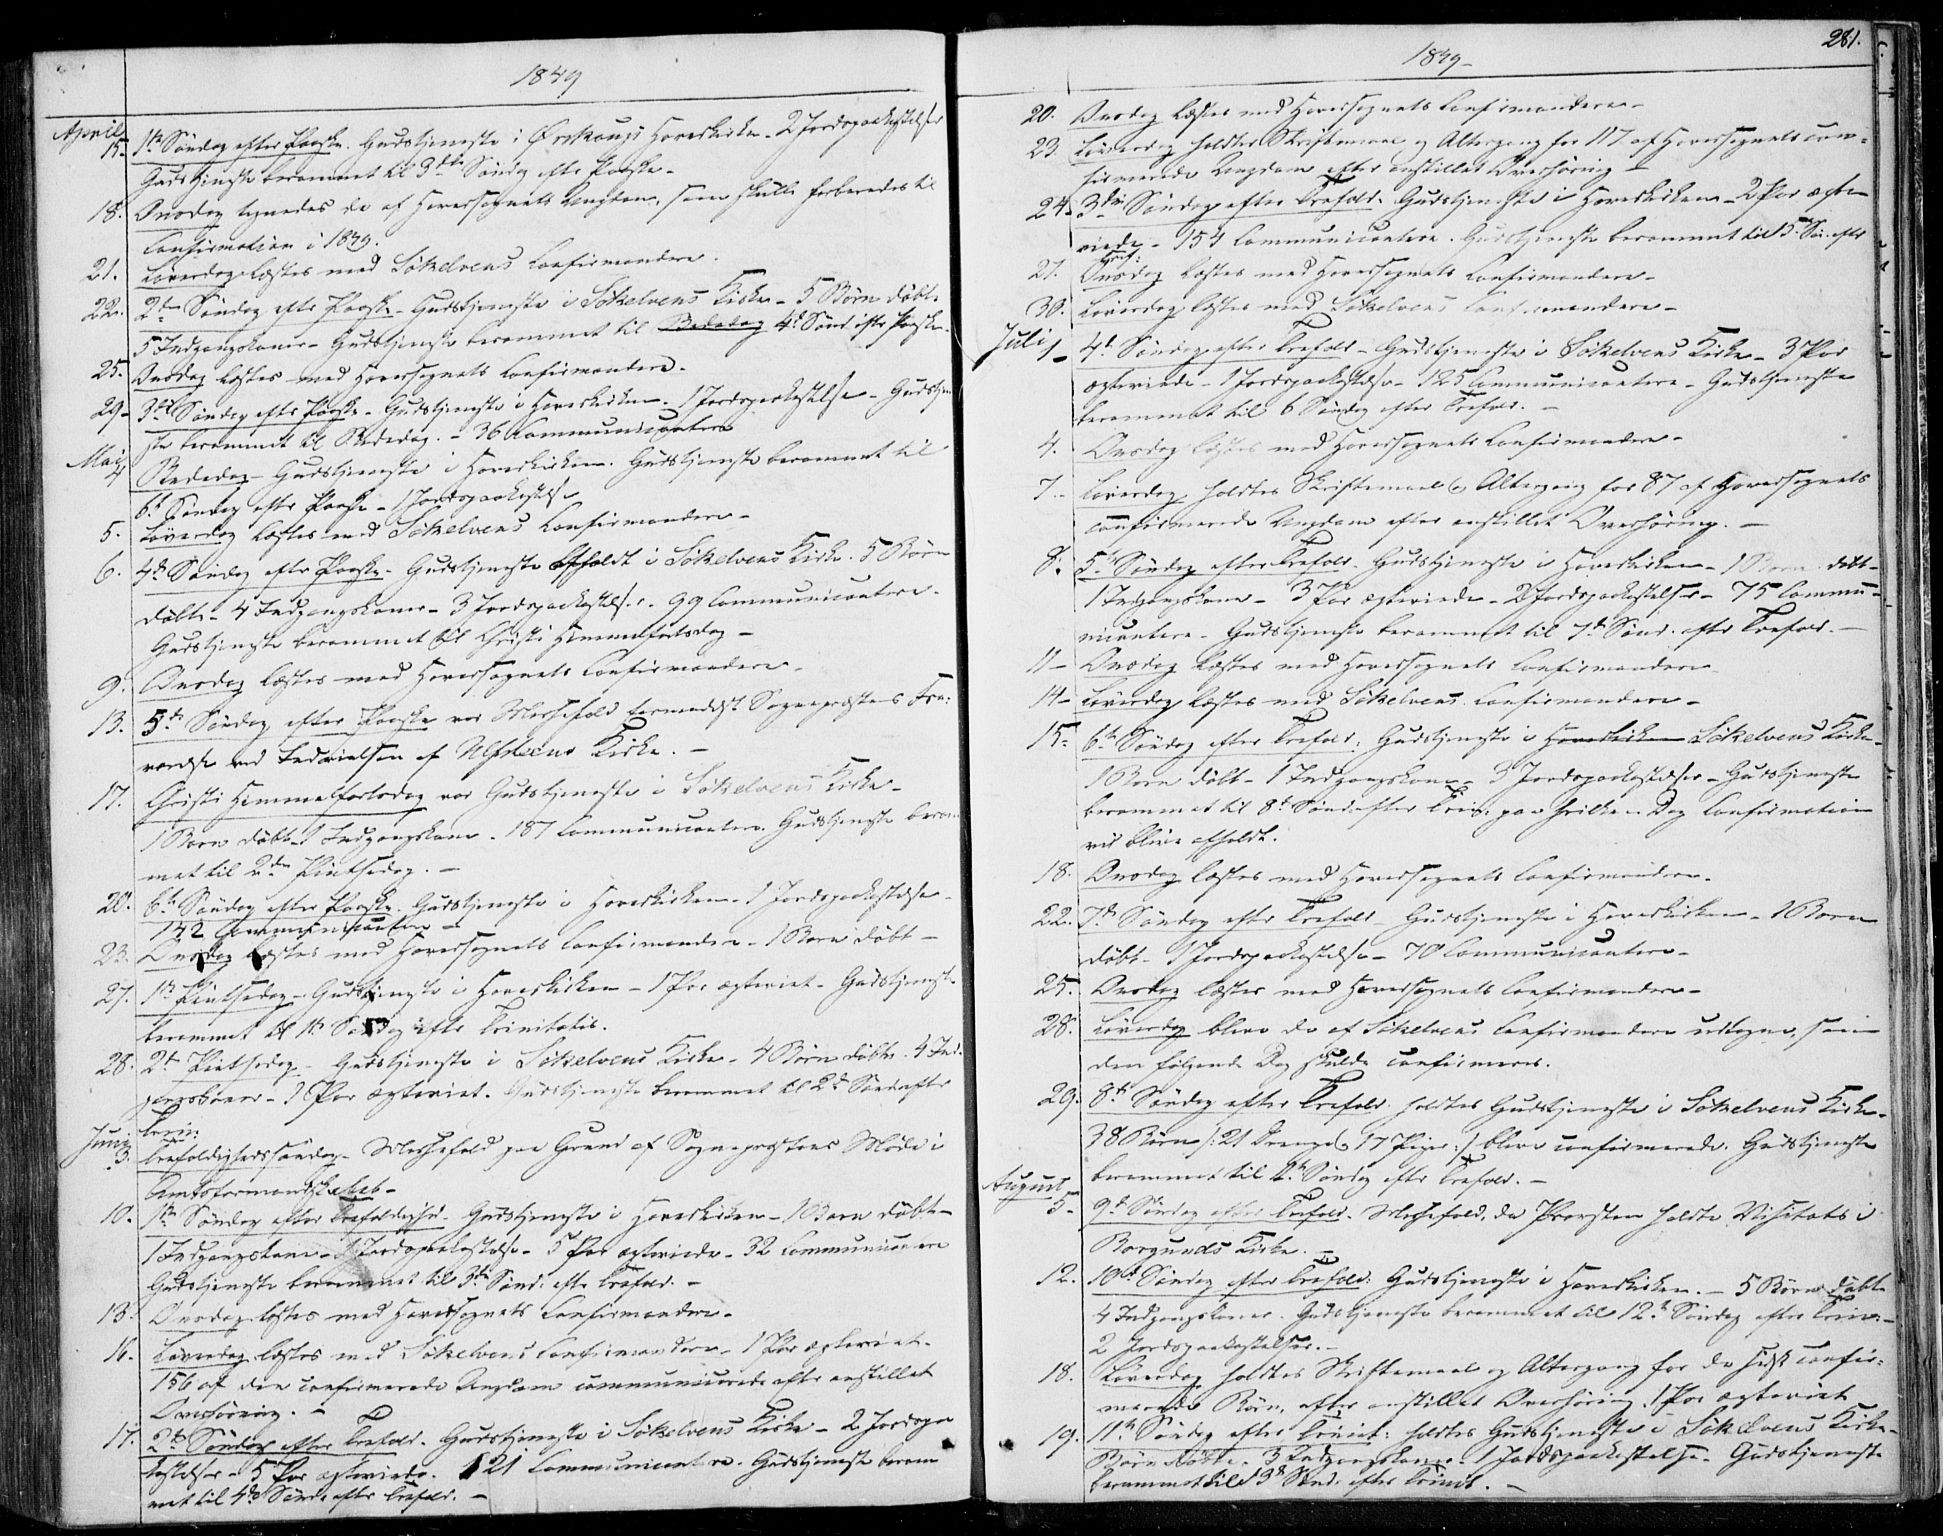 1849
April
15. 1ste Søndag efter Paaske. Gudstjeneste i Ørskougs Hovedkirke. 2 Jordspaakastelser
Gudstjeneste berammet til 3die Søndag efter Paaske.
18. Onsdag tegnedes de af Hovedsognets Ungdom, som skulle forberedes til
Confirmation i 1849.
21. Løverdag læstes med Søkelvens Confirmander.
22. 2den Søndag efter Paaske. Gudstjeneste i Søkelvens Kirke. 5 Børn døbte
5 Indgangskoner. Gudstjeneste berammet til Bededag 4de Sønd. efter Paaske.
25. Onsdag læstes med Hovedsognets Confirmander.
29. 3die Søndag efter Paaske. Gudstjeneste i Hovedkirken. 1 Jordspaakastelse. Gudstjene-
ste berammet til Bededag. 36 Communicantere
Mai
4 Bededag. Gudstjeneste i Hovedkirken. Gudstjeneste berammet til
6te Søndag efter Paaske. 1 Jordspaakastelse
5. Løverdag læstes med Søkelvens Confirmandere.
6. 4de Søndag efter Paaske. Gudstjeneste afholdt i Søkelvens Kirke. 5 Børn
døbte. 4 Indgangskoner. 3 Jordspaakastelser. 99 Communicantere.
Gudstjeneste berammet til Christi Himmelfartsdag.
9. Onsdag læstes med Hovedsognets Confirmandere.
13. 5te Søndag efter Paaske var Messefald formedelst Sognepræstens Fra-
værelse ved Indvielsen af Ulfsteens Kirke.
17. Christi Himmelfartsdag var Gudstjeneste i Søkelvens Kirke.
1 Barn døbt. 1 Indgangskone. 187 Communicantere. Gudstjeneste beram-
met til 2den Pintsedag.
20. 6te Søndag efter Paaske. Gudstjeneste i Hovedkirken. 1 Jordspaakastelse.
142 Communicantere
23. Onsdag læstes med Hovedsognets Confirmandere. 1 Barn døbt.
27. 1ste Pintsedag. Gudstjeneste i Hovedkirken. 1 Par ægteviet. Gudstjeneste
berammet til 1ste Søndag efter Trinitatis.
28. 2den Pintsedag. Gudstjeneste i Søkelvens Kirke. 4 Børn døbte. 4 Ind-
gangskoner. Par ægteviet. Gudstjeneste berammet til 2den Sønd. efter
Trin:
Juni
3. Trefoldighedssøndag. Messefald paa Grund af Sognepræstens Møde i
Amtsformandskabet.
10. 1ste Søndag efter Trefoldighed. Gudstjeneste i Hovedkirken. 1 Barn døbt.
1 Indgangskone. Jordspaakastelse. 5 Par ægteviede. 32 Communicantere
Gudstjeneste berammet til 3die Sønd: efter Trefold.
13. Onsdag læstes med Hovedsognets Confirmandere.
16. Løverdag læstes med Søkelvens Confirmandere. 1 Par ægteviet.
156 af den confirmerede Ungdom communicerede efter anstillet
Overhøring.
17. 2den Søndag efter Trefold. Gudstjeneste i Søkelvens Kirke. 2 Jordspaa-
kastelser. 5 Par ægteviede. 121 Communicantere. Gudstjeneste beram-
met til 4de Sønd. efter Trefold.
281.
1849
20. Onsdag læstes med Hovedsognets Confirmandere.
23. Løverdag holdtes Skriftemaal og Altergang for 117 af Hovedsognets con-
firmerede Ungdom efter anstillet Overhøring
24. 3die Søndag efter Trefold. Gudstjeneste i Hovedkirken. 2 Par ægte-
viede. 151 Communicantere. Gudstjeneste berammet til 5te Søn. efter
Tref:
27. Onsdag læstes med Hovedsognets Confirmandere.
30. Løverdag læstes med Søkelvens Confirmandere.
Juli
1 4de Søndag efter Trefold. Gudstjeneste i Søkelvens Kirke. 3 Par
ægteviede. 1 Jordspaakastelse. 125 Communicantere. Gudstjeneste
berammet til 6 Søndag efter Trefold.
4. Onsdag læstes med Hovedsognets Confirmandere.
7. Løverdag holdtes Skriftemaal og Altergang for 87 af Hovedsognets
confirmerede Ungdom efter anstillet Overhøring.
8. 5te Søndag efter Trefold. Gudstjeneste i Hovedkirken. 1 Barn døbt.
1 Indgangskone. 3 Par ægteviede. 2 Jordspaakastelser. 75 Commu-
nicantere. Gudstjeneste berammet til 7de Sønd. efter Trefold.
11. Onsdag læstes med Hovedsognets Confirmandere
14. Løverdag læstes med Søkelvens Confirmandere.
15. 6te Søndag efter Trefold. Gudstjeneste i Hovedkirken Søkelvens Kirke.
1 Barn døbt. 1 Indgangskone. 3 Jordspaakastelser. Gudstjeneste
berammet til 8de Sønd. efter Trin: paa hvilken Dag Confirmation
vil blive afholdt.
18. Onsdag læstes med Hovedsognets Confirmandere.
22. 7de Søndag efter Trefold. Gudstjeneste i Hovedkirken. 1 Barn
døbt. 1 Jordspaakastelse. 70 Communicantere.
25. Onsdag læstes med Hovedsognets Confirmandere.
28. Løverdag bleve de af Søkelvens Confirmandere udtagne, som
den følgende Dag skulde confirmeres.
29. 8de Søndag efter Trefold. holdtes Gudstjeneste i Søkelvens Kirke.
38 Børn /: 21 Drenge og 17 Piger :/ bleve confirmerede. Gudstjeneste
berammet til Søndag efter Trefold.
August
5. 9de Søndag efter Trefold. Messefald, da Provsten holdte Visitats i
Borgunds Kirke.
12. 10de Søndag efter Trefold. Gudstjeneste i Hovedkirken. 5 Børn døbte
4 Indgangskoner. Gudstjeneste berammet til 12te Søndag efter Trin:
2 Jordspaakastelser.
18. Løverdag holdtes Skriftemaal og Altergang for de sidst confir-
merede Børn, efter anstillet Overhøring. 1 Par ægteviet
19. 11te Søndag efter Trinit: holdtes Gudstjeneste i Søkelvens Kirke.
Børn døbte. 3 Indgangskoner. 1 Jordspaakastelse. Gudstjeneste
berammet til 13de Sønd. efter Trinit.